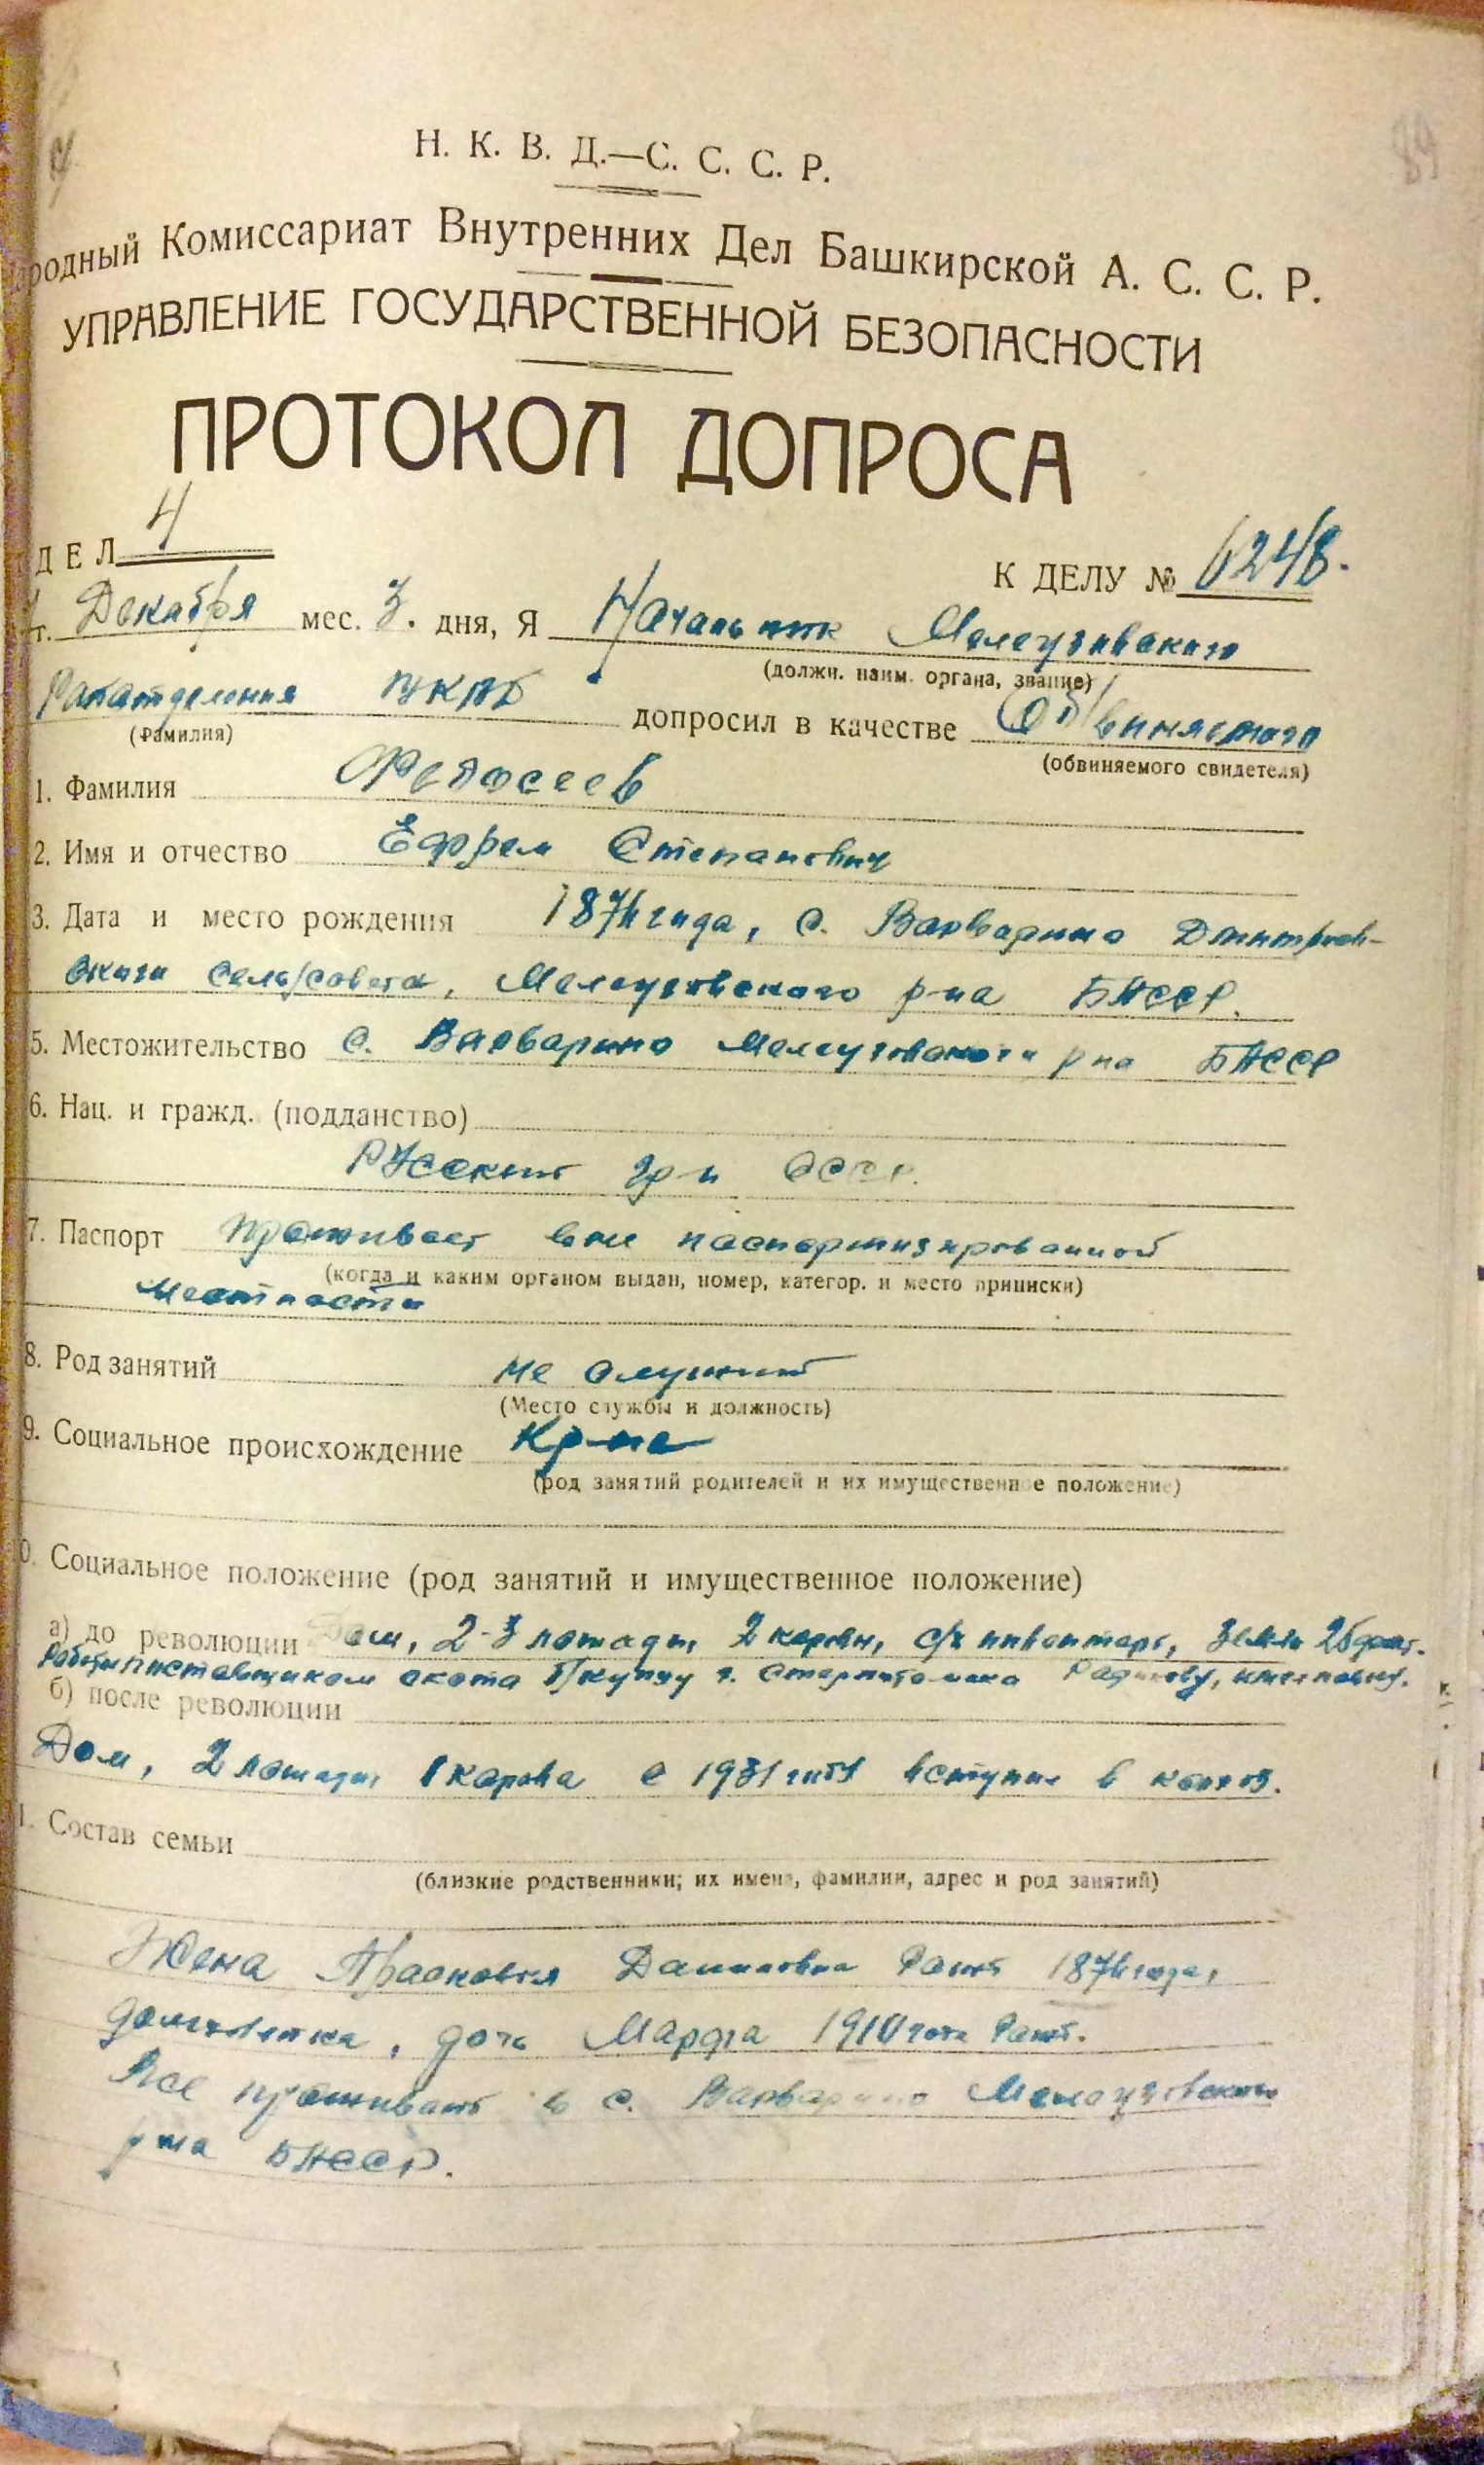 89
Н. К. В. Д.—С. С. С. Р.
родный Комиссариат Внутренних Дел Башкирской А. С. С. Р.
УПРАВЛЕНИЕ ГОСУДАРСТВЕННОЙ БЕЗОПАСНОСТИ
ПРОТОКОЛ ДОПРОСА
ДЕЛ 4
К ДЕЛУ № 6248.
г. Декабря мес. 3. дня, Я Начальник Мелеузовского
(должн. наим. органа, звание)
допросил в качестве Обвиняемого
(Фамилия)
(обвиняемого свидетеля)
1. Фамилия Федосеев
2. Имя и отчество Ефрем Степанович
3. Дата и место рождения 1874 года, с. Варварино Дмитриев-
ского сель/совета, Мелеузовского р-на БАССР.
5. Местожительство с. Варварино Мелеузовского р-на БАССР
6. Нац. и гражд. (подданство)
Русский гр-н СССР.
7. Паспорт Проживает вне паспортизированной
(когда и каким органом выдан, номер, категор. и место приписки)
местности
8. Род занятий не служит
(Место службы и должность)
9. Социальное происхождение Кр-не
(род занятий родителей и их имущественное положение)
0. Социальное положение (род занятий и имущественное положение)
а) до революции Дом, 2-3 лошади, 2 коровы, с/х инвентарь, земли
поставщиком скота купцу г. Стерлитамака
б) после революции
Дом, 2 лошади, 1 корова с 1931 года вступил в колхоз.
1. Состав семьи
(близкие родственники; их имена, фамилии, адрес и род занятий)
Жена Прасковья Даниловна рожд 1874 года,
домохозяйка, дочь Марфа 1910 года рожд.
Все проживают в с. Варварино Мелеузовского
р-на БАССР.